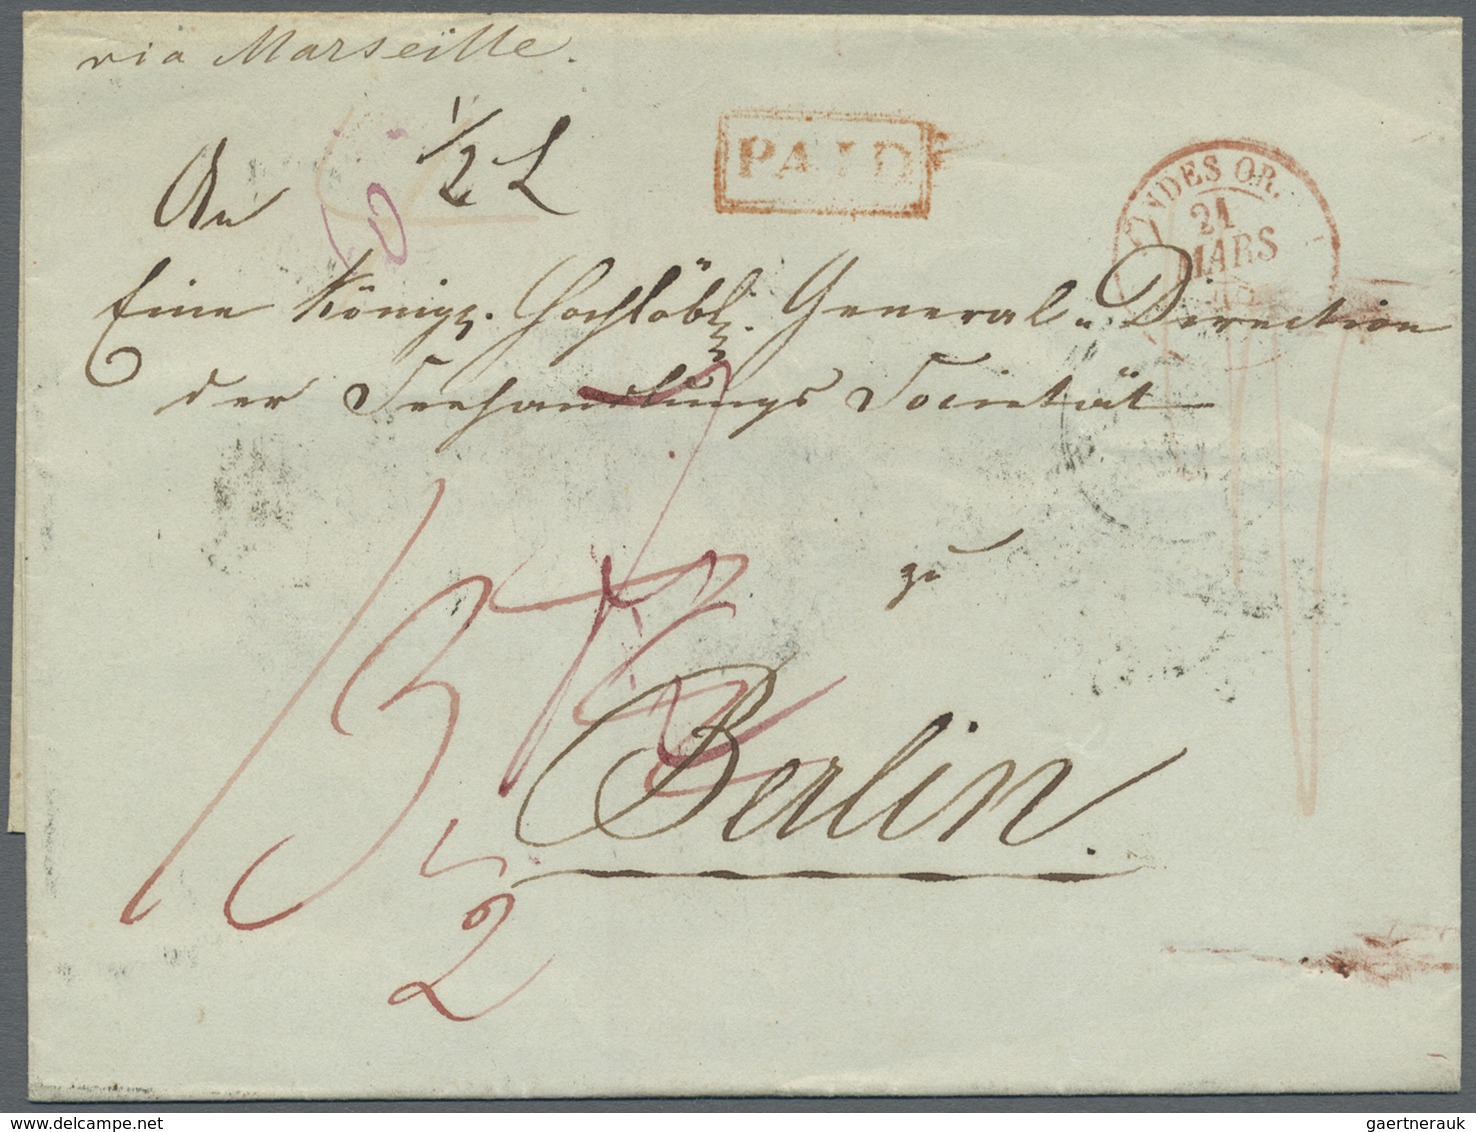 via Marseille.
1/2 L
PAID
INDES OR.
21
MARS
An
Eine Königl. Hochlöbl. General-Direction
der Seehandlungs Societät
zu
Berlin.
2
gaertnerauk